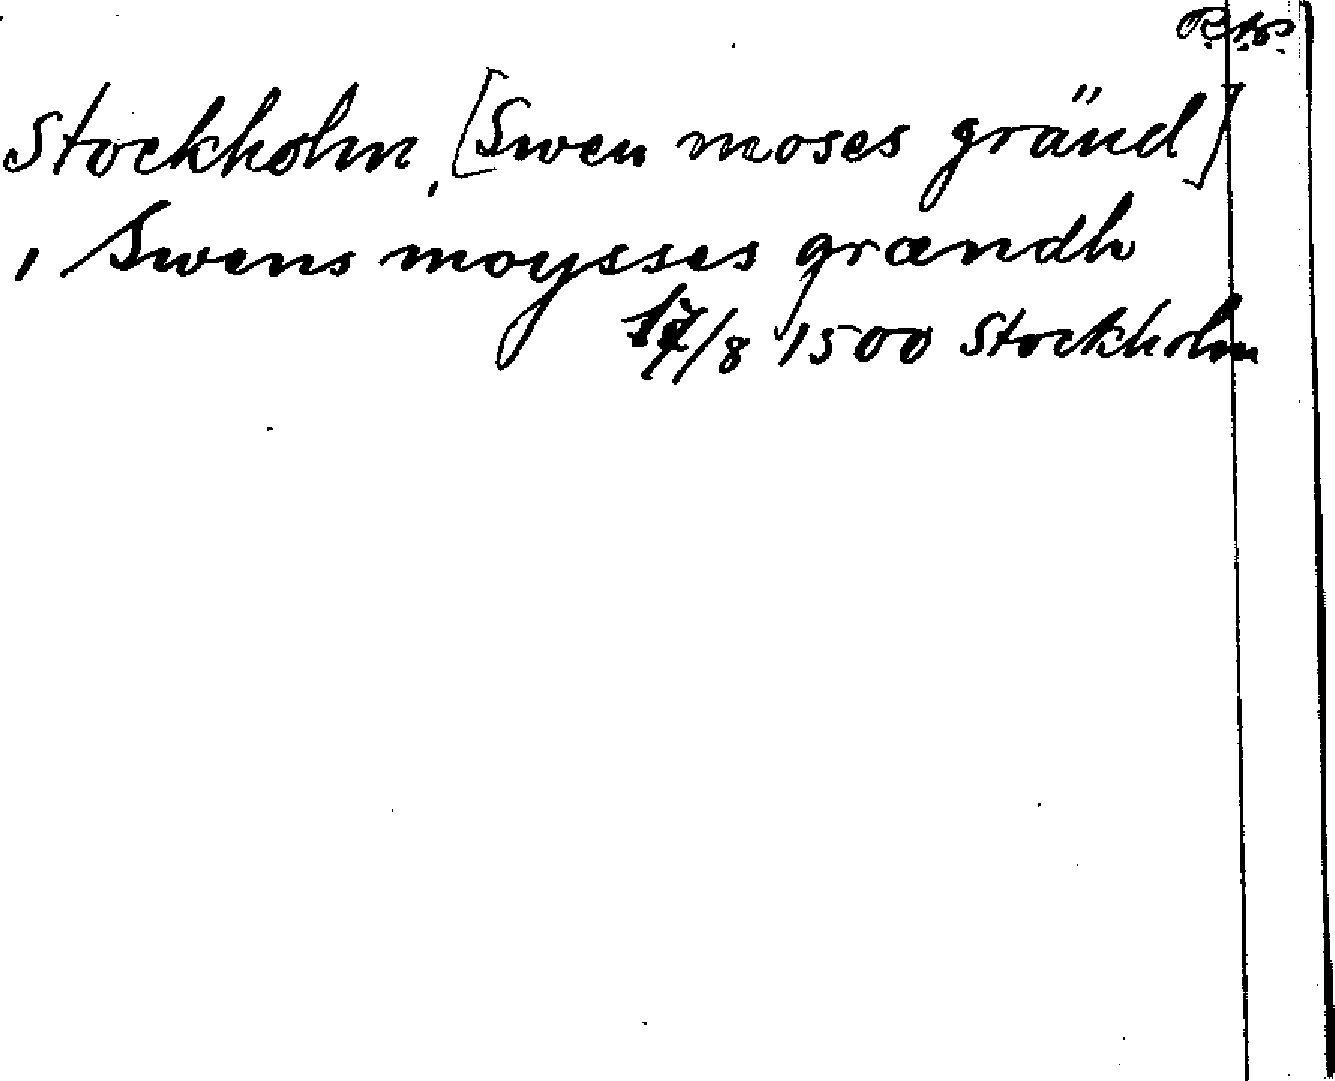 Stockholm, [Swen moses gränd]
, Swens moysses grændh
/8 1500 Stockholm